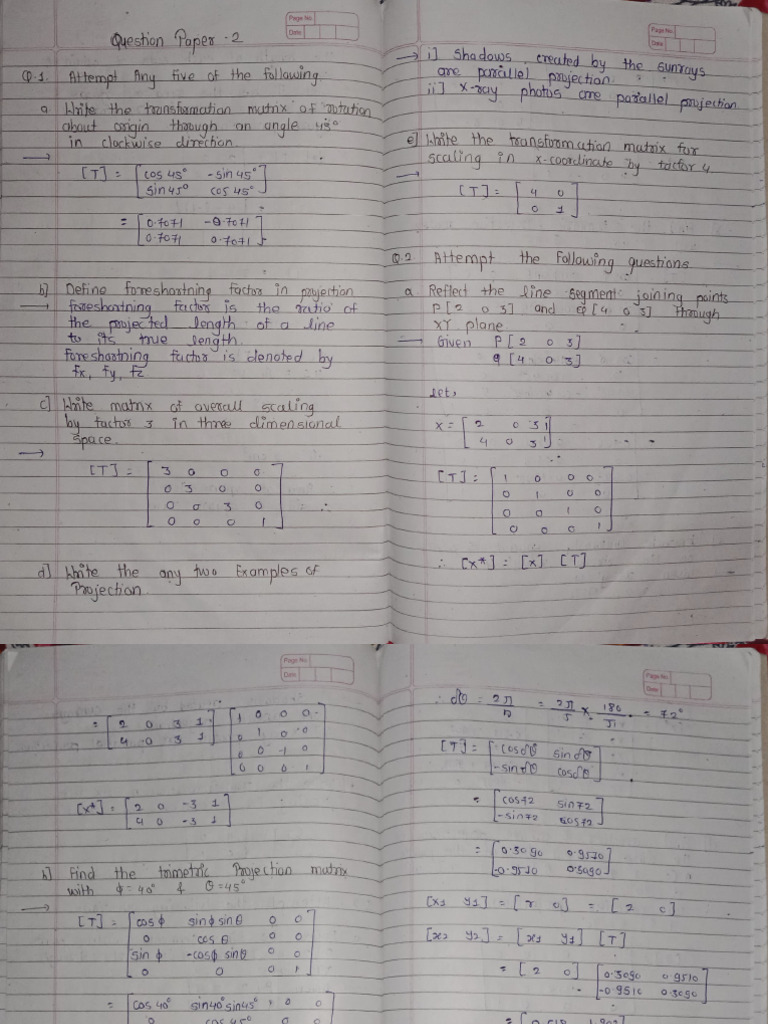 Page No.
Date
Question Paper - 2
Q.1. Attempt Any five of the following
a Write the transformation matrix of rotation
about origin through an angle 45°
in clockwise direction.
→ [T] = [cos 45° -sin 45°
sin 45° cos 45°]
= [0.7071 -0.7071
0.7071 0.7071]
b) Define foreshortning factor in projection
→ foreshortning factor is the ratio of
the projected length of a line
to its true length.
foreshortning factor is denoted by
fx, fy, fz
c) Write matrix of overall scaling
by factor 3 in three dimensional
space.
→
[T] = [3 0 0 0
0 3 0 0
0 0 3 0
0 0 0 1]
d) Write the any two Examples of
Projection.
Page No.
Date
→ i] Shadows created by the sunrays
are parallel projection.
ii] X-ray photos are parallel projection
e) Write the transformation matrix for
scaling in x-coordinate by factor 4
→
[T] = [4 0
0 1]
Q.2 Attempt the Following questions
a Reflect the line segment joining points
P[2 0 3] and q[4 0 3] through
XY plane
→ Given P[2 0 3]
q[4 0 3]
let,
x = [2 0 3 1
4 0 3 1]
[T] = [1 0 0 0
0 1 0 0
0 0 1 0
0 0 0 1]
∴ [x*] = [x] [T]
Page No.
Date
= [2 0 3 1
4 0 3 1] [1 0 0 0
0 1 0 0
0 0 -1 0
0 0 0 1]
[x*] = [2 0 -3 1
4 0 -3 1]
b) Find the trimetric Projection matrix
with ϕ = 40° & θ = 45°
→
[T] = [cos ϕ sin ϕ sin θ 0 0
0 cos θ 0 0
sin ϕ -cos ϕ sin θ 0 0
0 0 0 1]
= [cos 40° sin 40° sin 45° 0 0
0 cos 45° 0 0
Page No.
Date
∴ dθ = 2π/n = 2π/5 × 180/π = 72°
[T] = [cos dθ sin dθ
-sin dθ cos dθ]
= [cos 72 sin 72
-sin 72 cos 72]
= [0.3090 0.9510
-0.9510 0.3090]
[x1 y1] = [r 0] = [2 0]
[x2 y2] = [x1 y1] [T]
= [2 0] [0.3090 0.9510
-0.9510 0.3090]